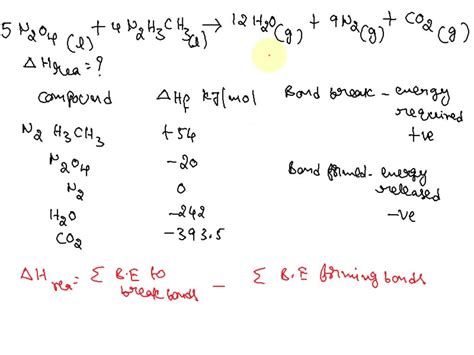 5 N2O4 (l) + 4 N2H3CH3 (l) → 12 H2O (g) + 9 N2 (g) + CO2 (g)
ΔH rea = ?
Compound ΔHf kJ/mol
N2 H3CH3 +54
N2O4 -20
N2 0
H2O -242
CO2 -393.5
Bond break - energy required
+ve
Bond formed - energy released
-ve
ΔH rea = Σ B.E to break bonds - Σ B.E forming bonds